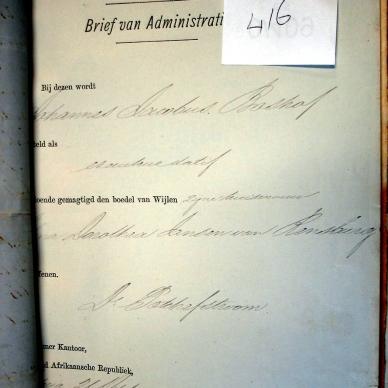 416
Brief van Administrati
Bij dezen wordt
Johannes Jacobus Boshof
teld als
executeur datif
oende gemagtigd den boedel van Wijlen zijne huisvrouw
Dorothea Janson van Rensburg
fenen.
De Potchefstroom
mer Kantoor,
d Afrikaansche Republiek,